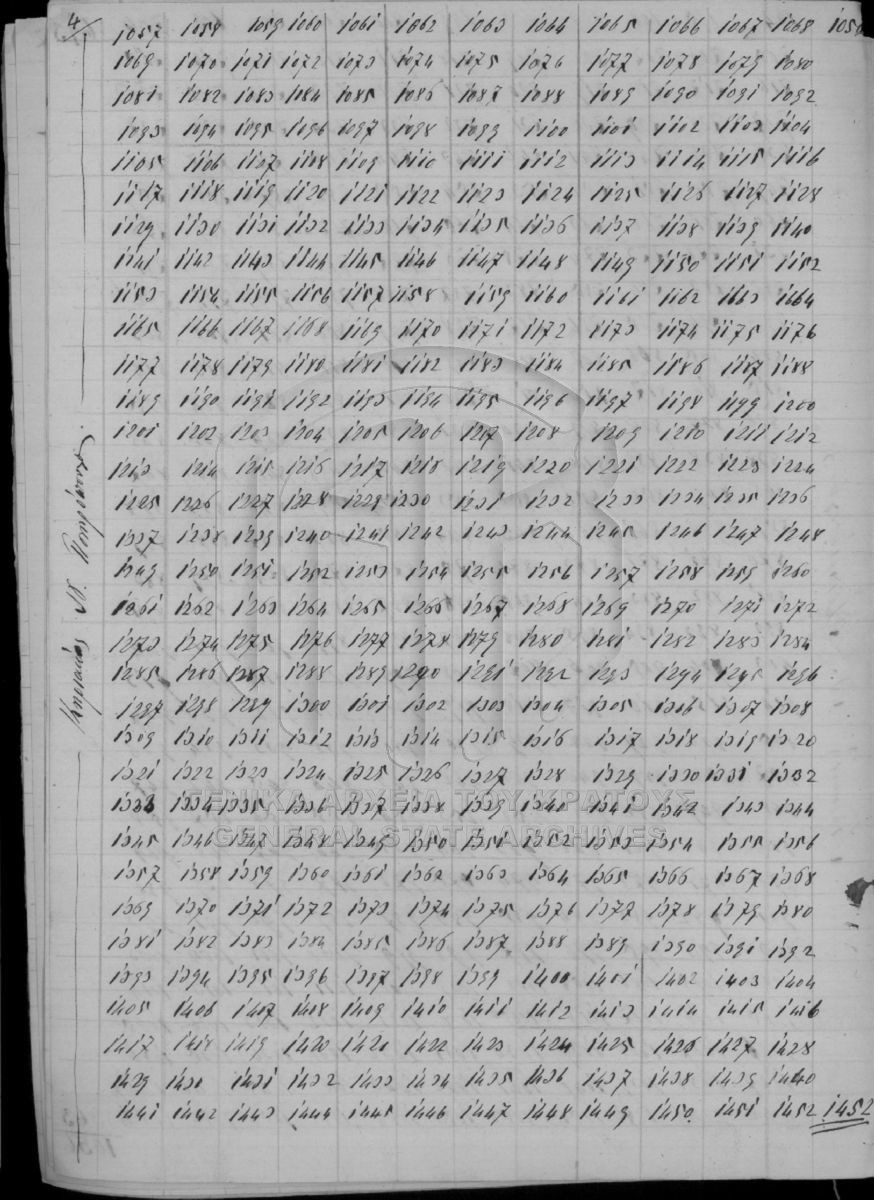 4/
1057 1058 1059 1060 1061 1062 1063 1064 1065 1066 1067 1068 1056
1069 1070 1071 1072 1073 1074 1075 1076 1077 1078 1079 1080
1081 1082 1083 1084 1085 1086 1087 1088 1089 1090 1091 1092
1093 1094 1095 1096 1097 1098 1099 1100 1101 1102 1103 1104
1105 1106 1107 1108 1109 1110 1111 1112 1113 1114 1115 1116
1117 1118 1119 1120 1121 1122 1123 1124 1125 1126 1127 1128
1129 1130 1131 1132 1133 1134 1135 1136 1137 1138 1139 1140
1141 1142 1143 1144 1145 1146 1147 1148 1149 1150 1151 1152
1153 1154 1155 1156 1157 1158 1159 1160 1161 1162 1163 1164
1165 1166 1167 1168 1169 1170 1171 1172 1173 1174 1175 1176
1177 1178 1179 1180 1181 1182 1183 1184 1185 1186 1187 1188
1189 1190 1191 1192 1193 1194 1195 1196 1197 1198 1199 1200
1201 1202 1203 1204 1205 1206 1207 1208 1209 1210 1211 1212
1213 1214 1215 1216 1217 1218 1219 1220 1221 1222 1223 1224
1225 1226 1227 1228 1229 1230 1231 1232 1233 1234 1235 1236
1237 1238 1239 1240 1241 1242 1243 1244 1245 1246 1247 1248
1249 1250 1251 1252 1253 1254 1255 1256 1257 1258 1259 1260
1261 1262 1263 1264 1265 1266 1267 1268 1269 1270 1271 1272
1273 1274 1275 1276 1277 1278 1279 1280 1281 1282 1283 1284
1285 1286 1287 1288 1289 1290 1291 1292 1293 1294 1295 1296
1297 1298 1299 1300 1301 1302 1303 1304 1305 1306 1307 1308
1309 1310 1311 1312 1313 1314 1315 1316 1317 1318 1319 1320
1321 1322 1323 1324 1325 1326 1327 1328 1329 1330 1331 1332
1333 1334 1335 1336 1337 1338 1339 1340 1341 1342 1343 1344
ΓΕΝΙΚΑ ΑΡΧΕΙΑ ΤΟΥ ΚΡΑΤΟΥΣ
GENERAL STATE ARCHIVES
1345 1346 1347 1348 1349 1350 1351 1352 1353 1354 1355 1356
1357 1358 1359 1360 1361 1362 1363 1364 1365 1366 1367 1368
1369 1370 1371 1372 1373 1374 1375 1376 1377 1378 1379 1380
1381 1382 1383 1384 1385 1386 1387 1388 1389 1390 1391 1392
1393 1394 1395 1396 1397 1398 1399 1400 1401 1402 1403 1404
1405 1406 1407 1408 1409 1410 1411 1412 1413 1414 1415 1416
1417 1418 1419 1420 1421 1422 1423 1424 1425 1426 1427 1428
1429 1430 1431 1432 1433 1434 1435 1436 1437 1438 1439 1440
1441 1442 1443 1444 1445 1446 1447 1448 1449 1450 1451 1452 1452